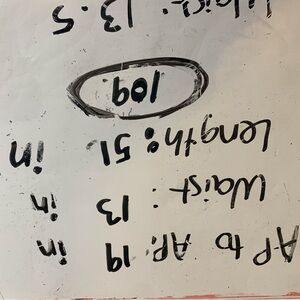 AP to AP: 19 in
Waist: 13 in
Length: 51 in
109
Waist: 13.5